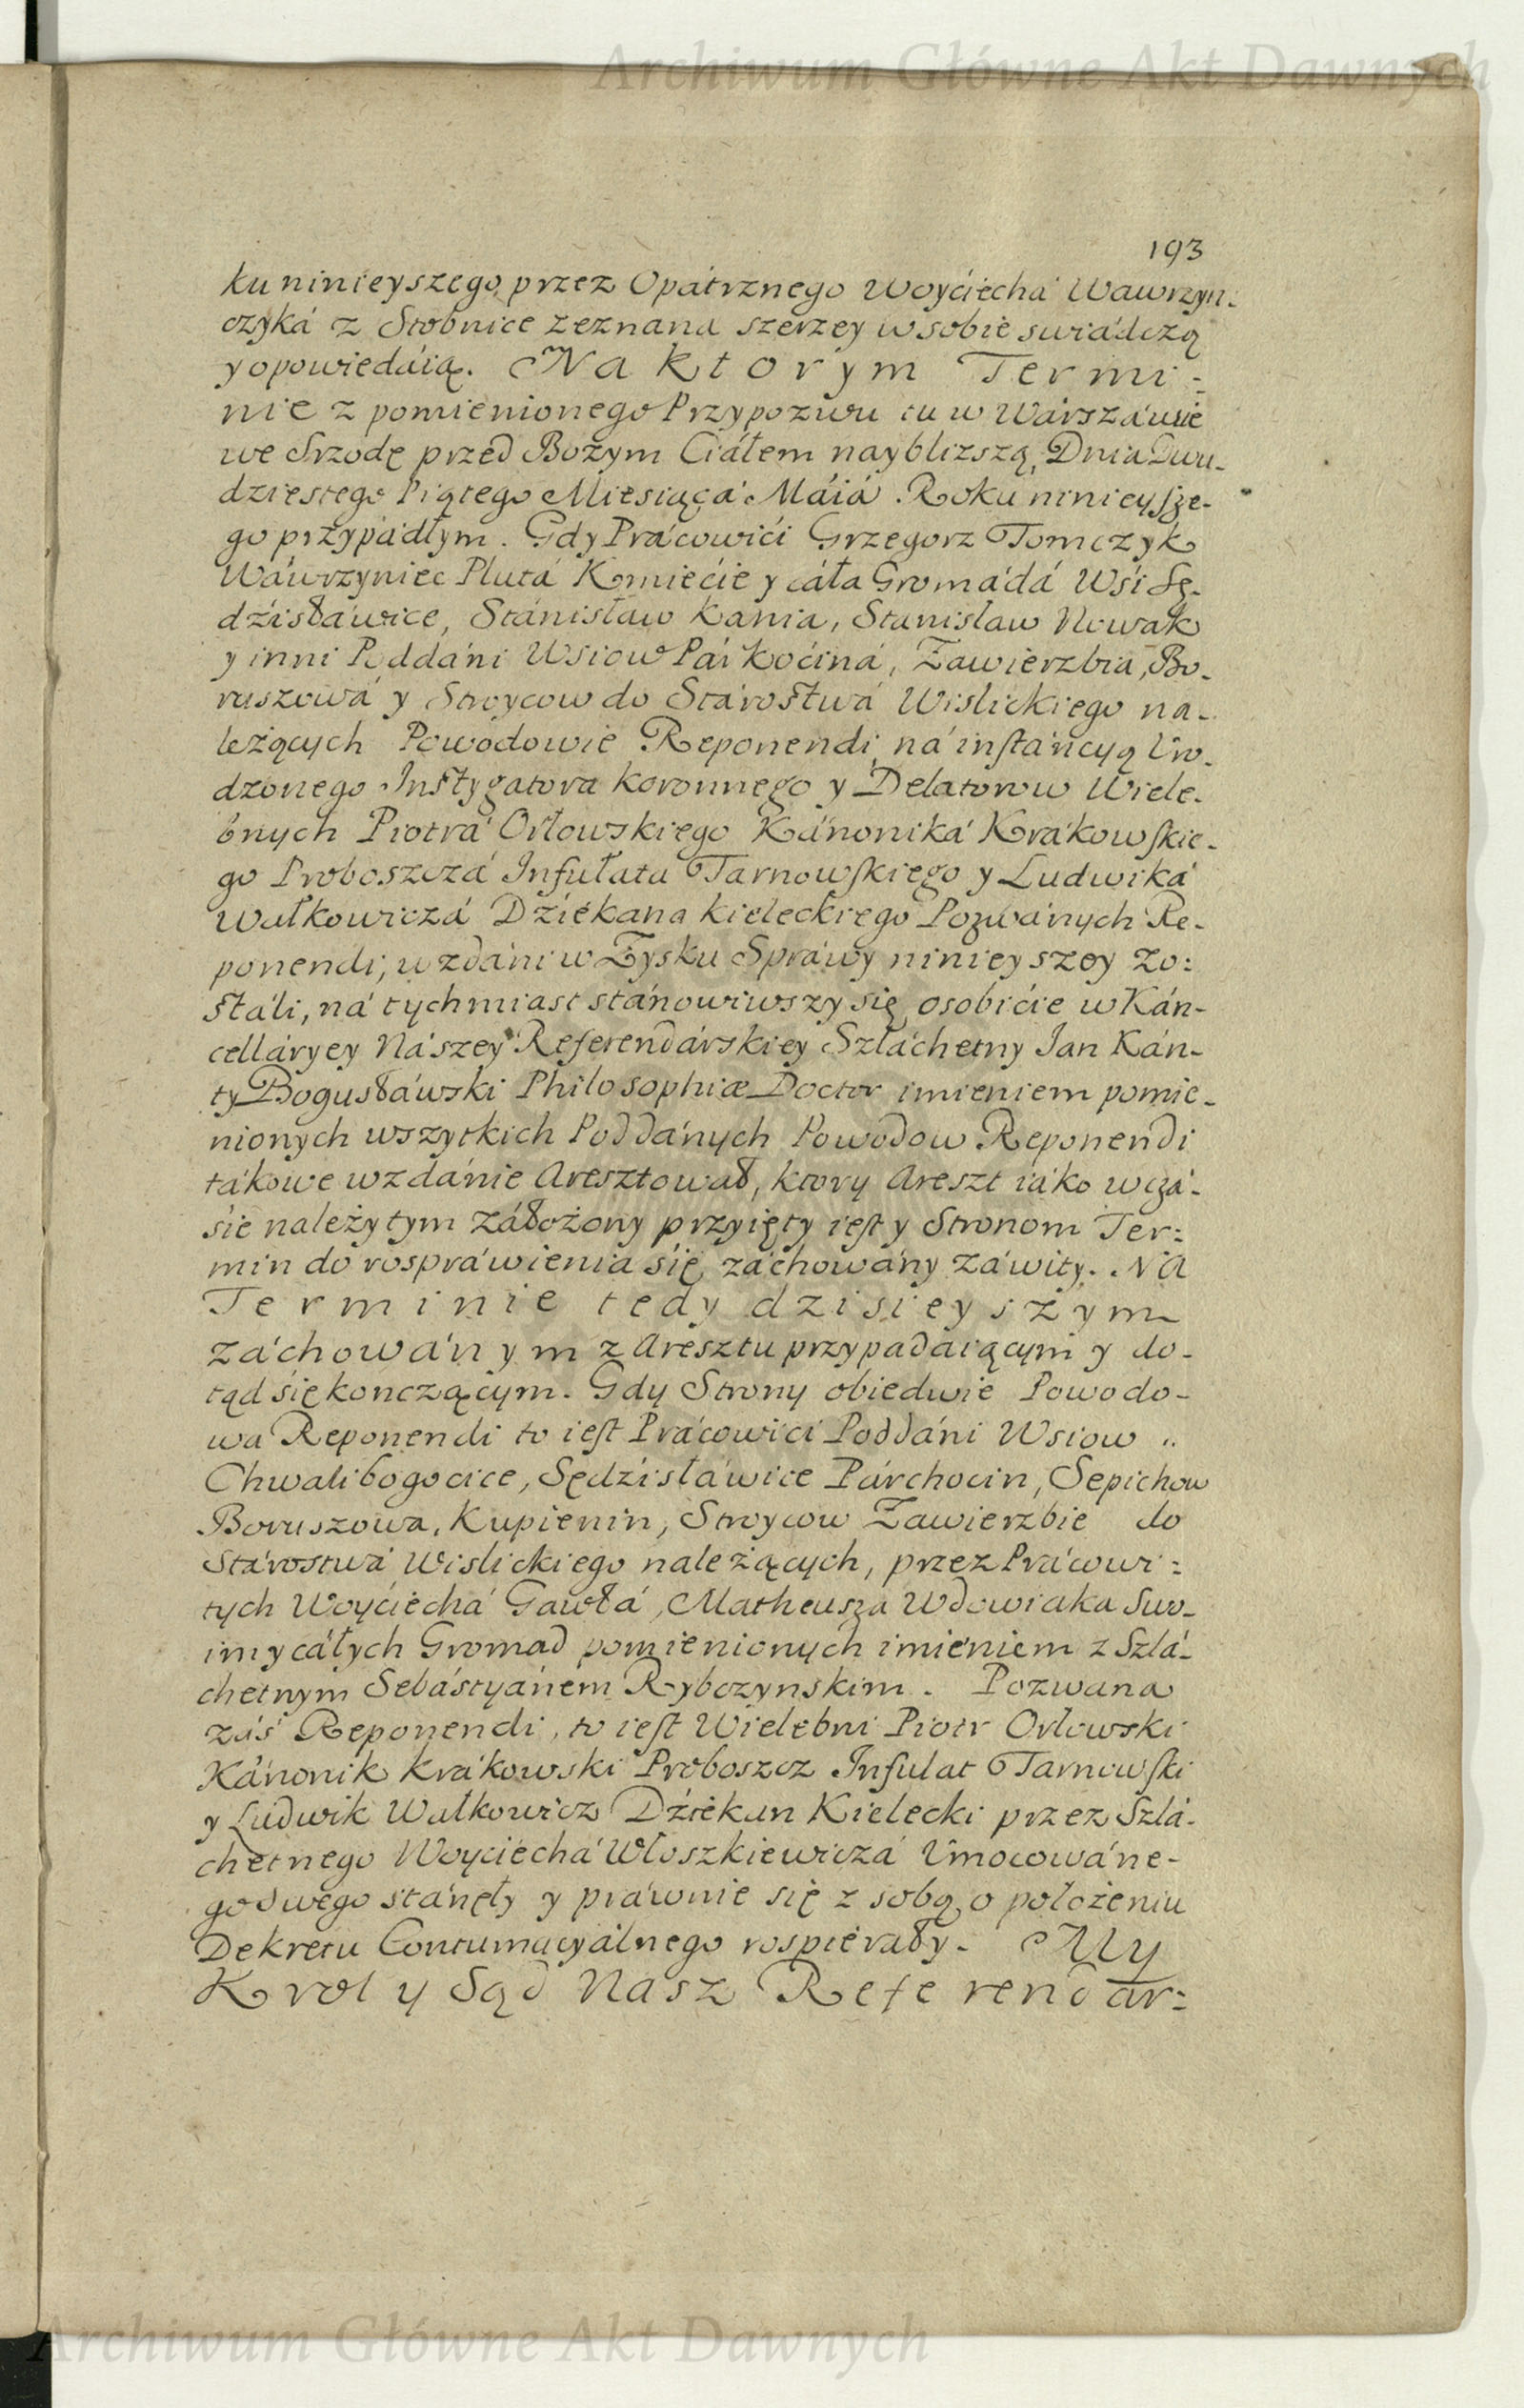 Archiwum Główne Akt Dawnych
193
ku ninieyszego przez Opátrznego Woyćiechá Wawrzyn-
czyká z Stobnice zeznana szerzey w sobie swiádczą
y opowiedáią. Na ktorym Termi:
nie z pomienionego Przypozwu tu w Wárszáwie
we Srzodę przed Bożym Ciáłem nayblizszą, Dnia Dwu-
dziestego Piątego Miesiącá Máiá Roku ninieysze-
go przypádłym. Gdy Prácowići Grzegorz Tomczyk
Wáwrzyniec Plutá Kmiećie y cáła Gromádá Wśi Sę-
dźisłáwice, Stánisław Kania, Stanisław Nowak
y inni Poddáni Wsiow Párkoćiná, Zawierzbia, Bo-
ruszowá y Stroycow do Stárostwá Wislickiego na-
leżących Powodowie Reponendi ná instáncyą Uro-
dzonego Instygatora Koronnego y Delatorow Wiele-
bnych Piotrá Orłowskiego Kánoniká Krákowskie-
go Proboszczá Infułata Tarnowskiego y Ludwiká
Wałkowiczá Dziékana Kieleckiego Pozwánych Re-
ponendi, wzdáni w Zysku Spráwy ninieyszey zo:
stáli, ná tychmiast stánowiwszy się osobiście w Kán-
celláryey Nászey Referendárskiey Szláchetny Jan Kán-
ty Bogusłáwski Philosophiæ Doctor imieniem pomie-
nionych wszytkich Poddánych Powodow Reponendi
tákowe wzdánie Aresztował, ktory Areszt iáko w czá-
sie należytym záłożony przyięty iest y Stronom Ter:
min do rospráwienia się záchowány záwity. Na
Terminie tedy dzisieyszym
záchowánym z Aresztu przypadaiącym y do-
tąd się konczącym. Gdy Strony obiedwie Powodo-
wa Reponendi to iest Prácowici Poddáni Wsiow
Chwalibogocice, Sędźisłáwice Párchocin, Sepichow
Boruszowa, Kupienin, Stroycow Zawierzbie do
Stárostwá Wislickiego należących, przez Prácowi:
tych Woyćiechá Gawłá, Matheusza Wdowiaka Swo-
im y cáłych Gromad pomienionych imieniem z Szlá-
chetnym Sebástyánem Rybczynskim. Pozwana
záś Reponendi, to iest Wielebni Piotr Orłowski
Kánonik Krákowski Proboszcz Infułat Tarnowski
y Ludwik Wałkowicz Dźiekan Kielecki przez Szlá-
chetnego Woyciechá Włoszkiewiczá Umocowáne-
go swego stánęły y práwnie się z sobą o położeniu
Dekretu Contumacyálnego rospierały. My
Krol y Sąd Nasz Referendar:
Archiwum Główne Akt Dawnych